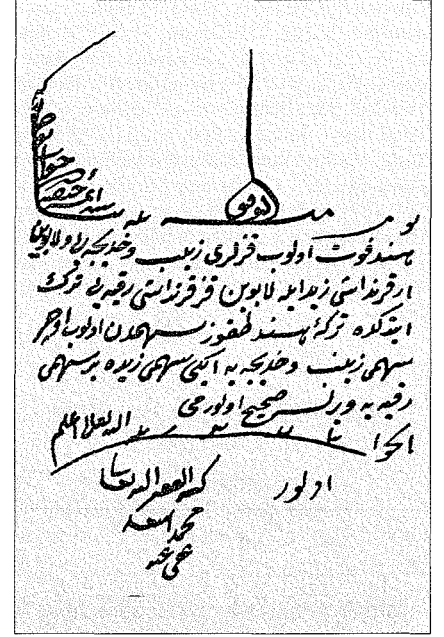 ائمه حنفیه
جواب
بو
هند فوت اولوب قزلری زینب و خدیجه یی و لابوین
ار قرنداشی زید ایله لابوین قز قرنداشی رقیه یی ترك
ایتدكده تركهٔ هند طقوز سهمدن اولوب اوچر
سهمی زینب و خدیجه یه ایكی سهمی زیده بر سهمی
رقیه یه ویرلسه صحیح اولورمی
الجواب الله تعالی اعلم
اولور
كتبه الفقیر الیه تعالی
محمد اسعد
عفی عنه